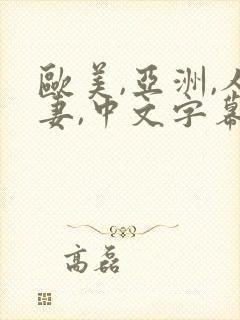 歐美,亞洲,人
妻,中文字幕
高磊